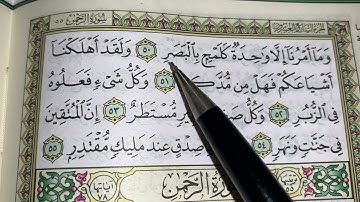 سُورَةُ الرَّحْمٰن ٥٥
وَمَا أَمْرُنَا إِلَّا وَاحِدَةٌ كَلَمْحٍ بِالْبَصَرِ ٥٠ وَلَقَدْ أَهْلَكْنَا
أَشْيَاعَكُمْ فَهَلْ مِنْ مُدَّكِرٍ ٥١ وَكُلُّ شَيْءٍ فَعَلُوهُ
فِي الزُّبُرِ ٥٢ وَكُلُّ مُسْتَطَرٌ ٥٣ إِنَّ الْمُتَّقِينَ
فِي جَنَّتٍ وَنَهَرٍ ٥٤ صِدْقٍ عِنْدَ مَلِيكٍ مُقْتَدِرٍ ٥٥
آيَاتُهَا ٧٨ سُورَةُ الرَّحْمٰن ٥٥